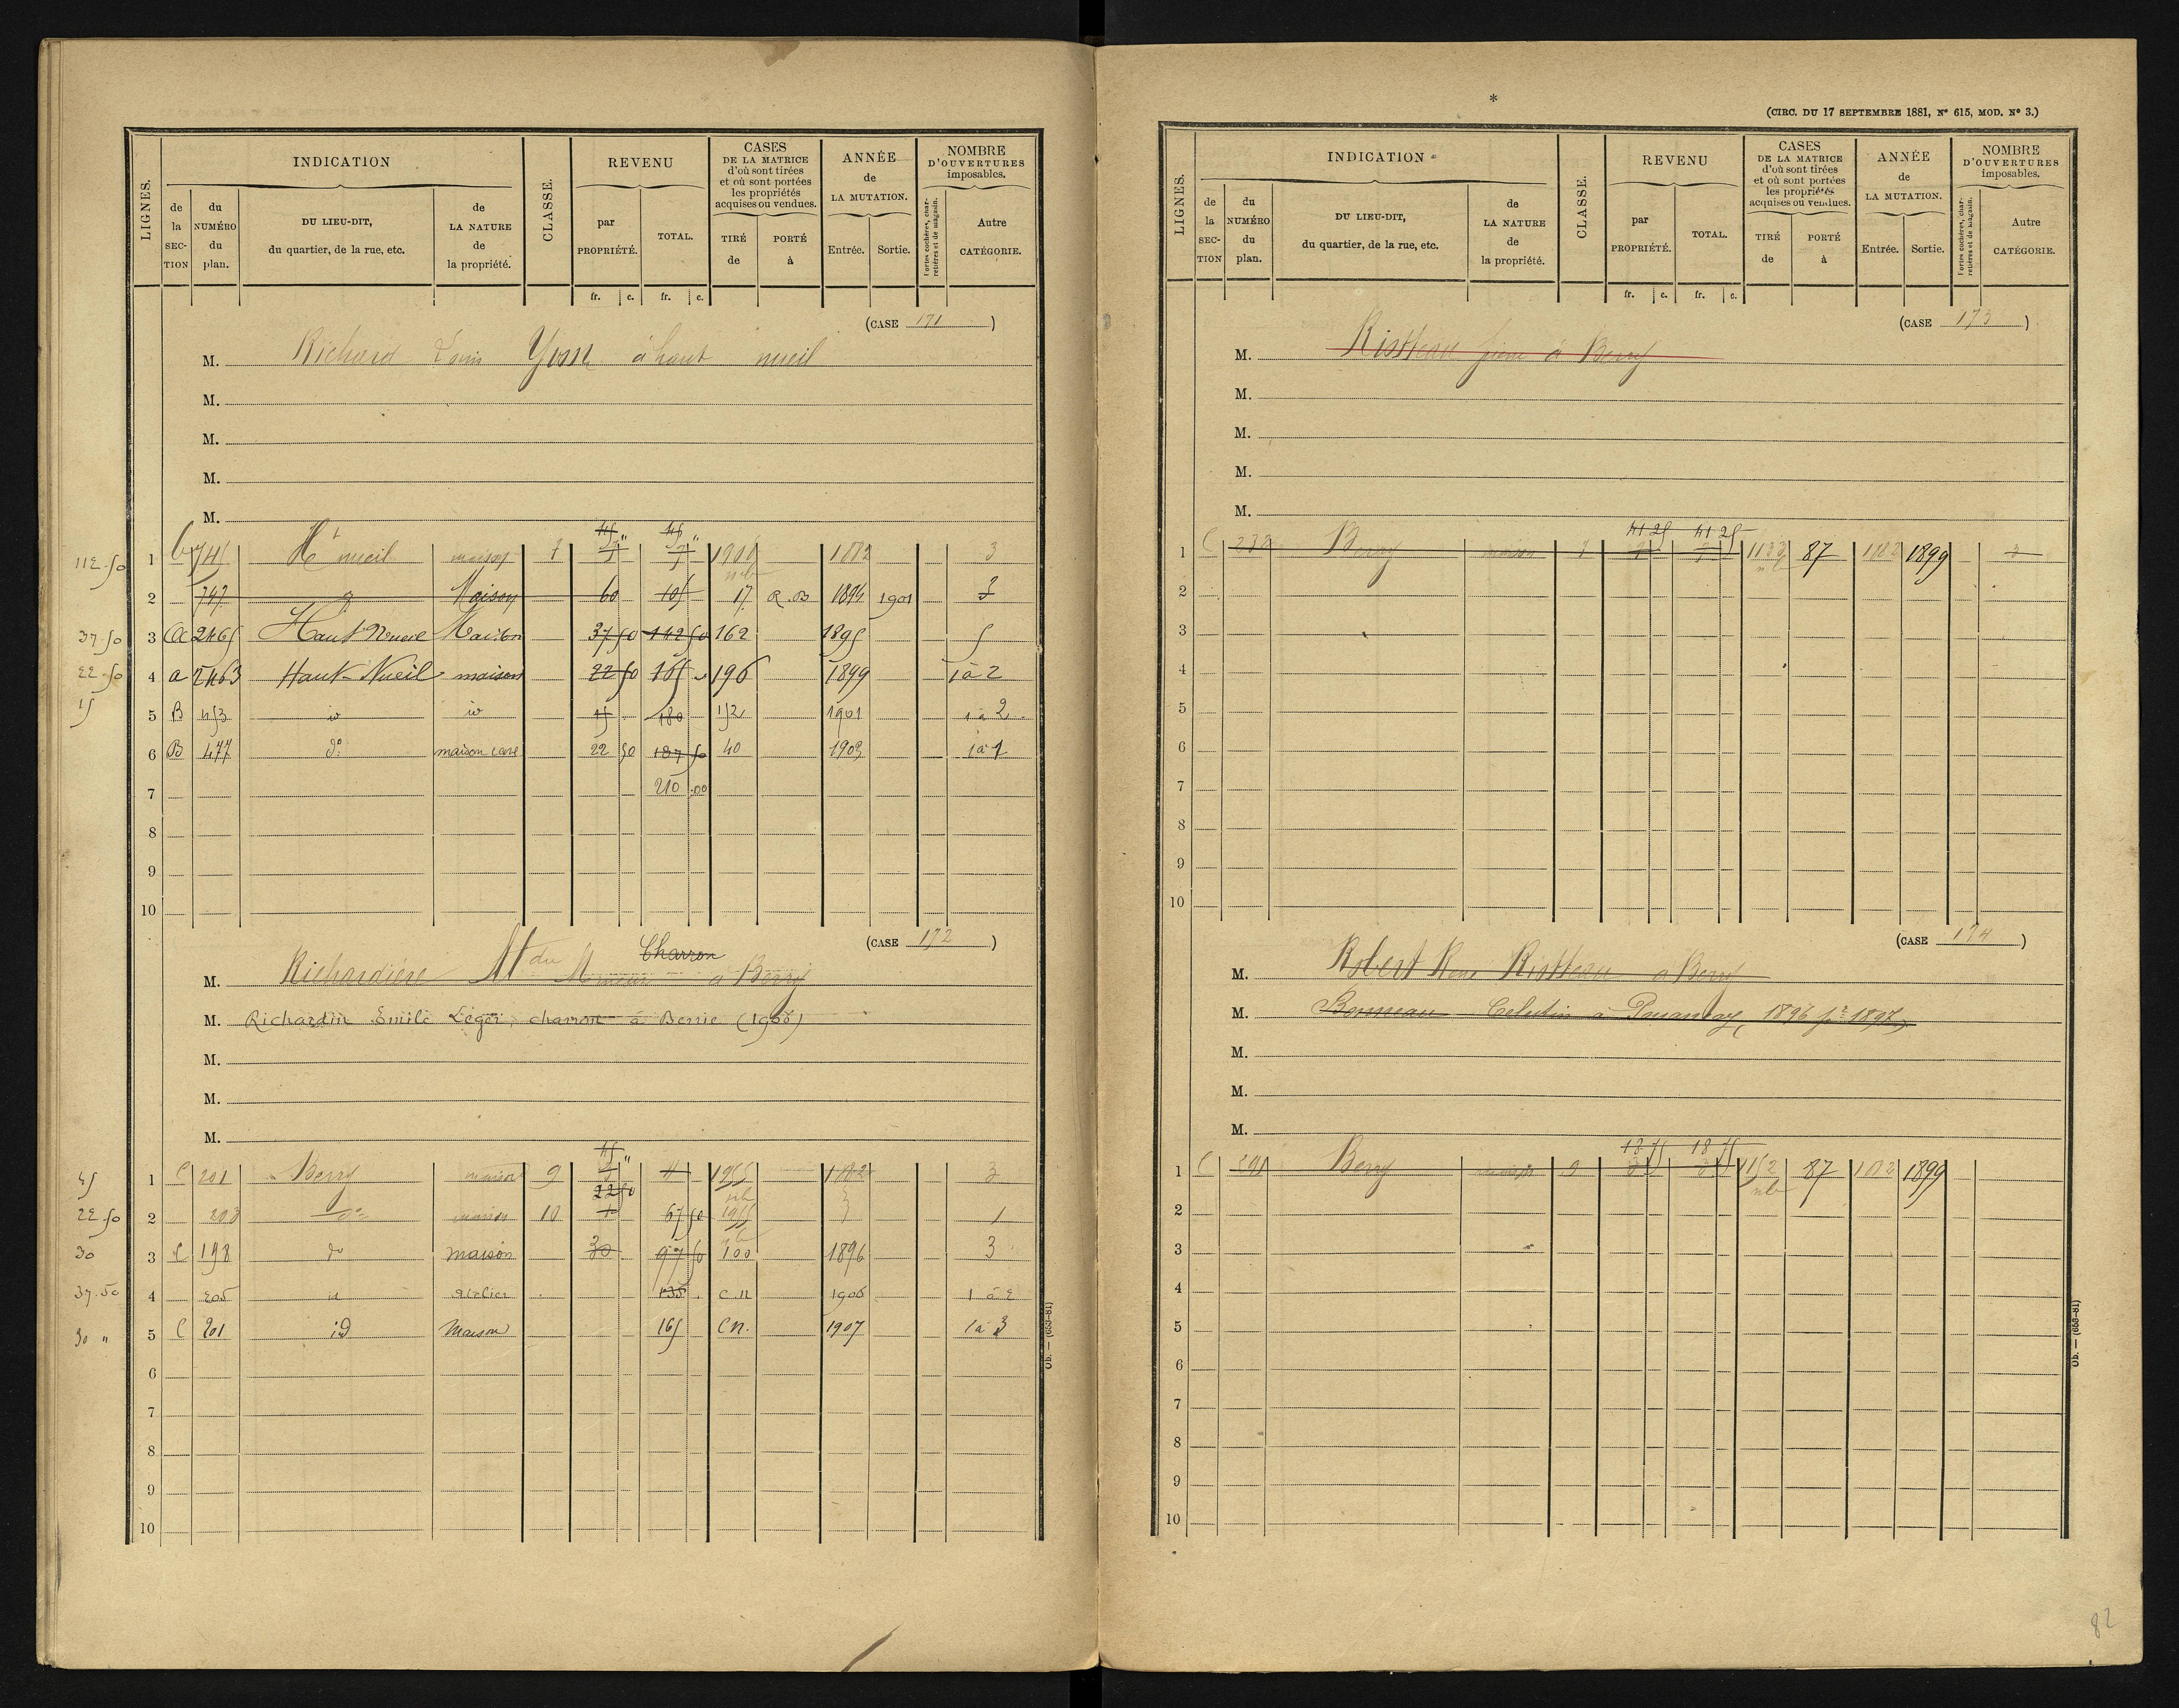 LIGNES.
INDICATION
de la SECTION
du NUMÉRO du plan.
DU LIEU-DIT, du quartier, de la rue, etc.
de LA NATURE de la propriété.
CLASSE.
REVENU
par PROPRIÉTÉ.
TOTAL.
CASES DE LA MATRICE d'où sont tirées et où sont portées les propriétés acquises ou vendues.
TIRÉ de
PORTÉ à
ANNÉE de LA MUTATION.
Entrée.
Sortie.
NOMBRE D'OUVERTURES imposables.
Portes cochères, charretières et de magasin.
Autre CATÉGORIE.
fr. c. fr. c.
(CASE 171)
M. Richard Louis à haut nueil
M.
M.
M.
M.
112.50 1 741 Ht nueil maison 7 1882 3
2 747 Maison 60 105 17 R.B 1894 1901 3
37.50 3 2465 Maison 37 50 142 50 162 1895 5
22.50 4 a 2463 Haut-Nueil maison 22 50 165 196 1899 1 à 2
15 5 B 453 id id 15 180 152 1901 1 à 2
6 B 477 do maison cave 22 50 187 50 40 1903 1 à 1
7 210 .00
8
9
10
(CASE 172)
M. Richardière à Berry
Charron
M. Richardin Emile Léger, charron à Berrie (1906)
M.
M.
M.
45 1 C 201 Berry maison 9 1882 3
22.50 2 203 do maison 10 22 50 67 50 1
30 3 C 198 do maison 30 97 50 100 1896 3
37.50 4 205 id atelier 135 C.N 1906 1 à 2
30 " 5 C 201 id Maison 165 CN. 1907 1 à 3
6
7
8
9
10
Ob. — (653-81)
*
(CIRC. DU 17 SEPTEMBRE 1881, N° 615, MOD. N° 3.)
LIGNES.
INDICATION
de la SECTION
du NUMÉRO du plan.
DU LIEU-DIT, du quartier, de la rue, etc.
de LA NATURE de la propriété.
CLASSE.
REVENU
par PROPRIÉTÉ.
TOTAL.
CASES DE LA MATRICE d'où sont tirées et où sont portées les propriétés acquises ou vendues.
TIRÉ de
PORTÉ à
ANNÉE de LA MUTATION.
Entrée.
Sortie.
NOMBRE D'OUVERTURES imposables.
Portes cochères, charretières et de magasin.
Autre CATÉGORIE.
fr. c. fr. c.
(CASE 173)
M. Ristteau à Berry
M.
M.
M.
M.
41 25 41 25
1 C 232 Berry maison 87 1882 1899 3
2
3
4
5
6
7
8
9
10
(CASE 174)
M. Robert Ristteau à Berry
M. Célestin à 1896 pr 1897
M.
M.
M.
18 75 18 75
1 C Berry maison 9 1152 87 1882 1899
2
3
4
5
6
7
8
9
10
Ob. — (653-81)
82